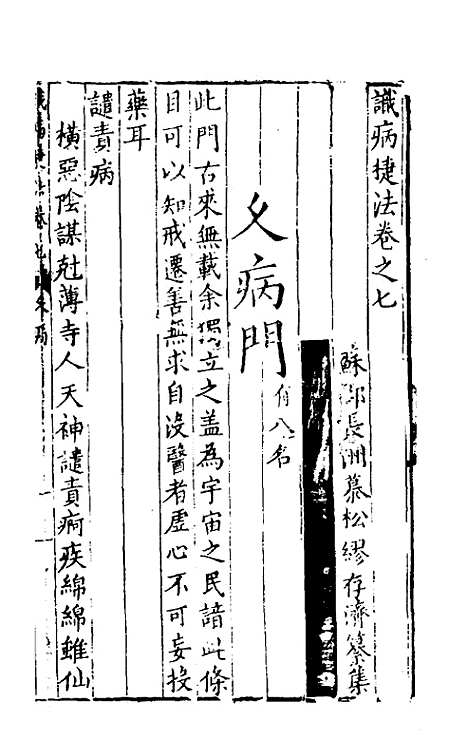 識病捷法卷之七
蘇郡長洲慕松繆存濟纂集
乂病門 有八名
此門古來無載余獨立之盖為宇宙之民諳此條
目可以知戒遷善無求自没醫者虛心不可妄投
藥耳
譴責病
橫惡陰謀尅薄寺人天神譴責痾疾綿綿雖仙